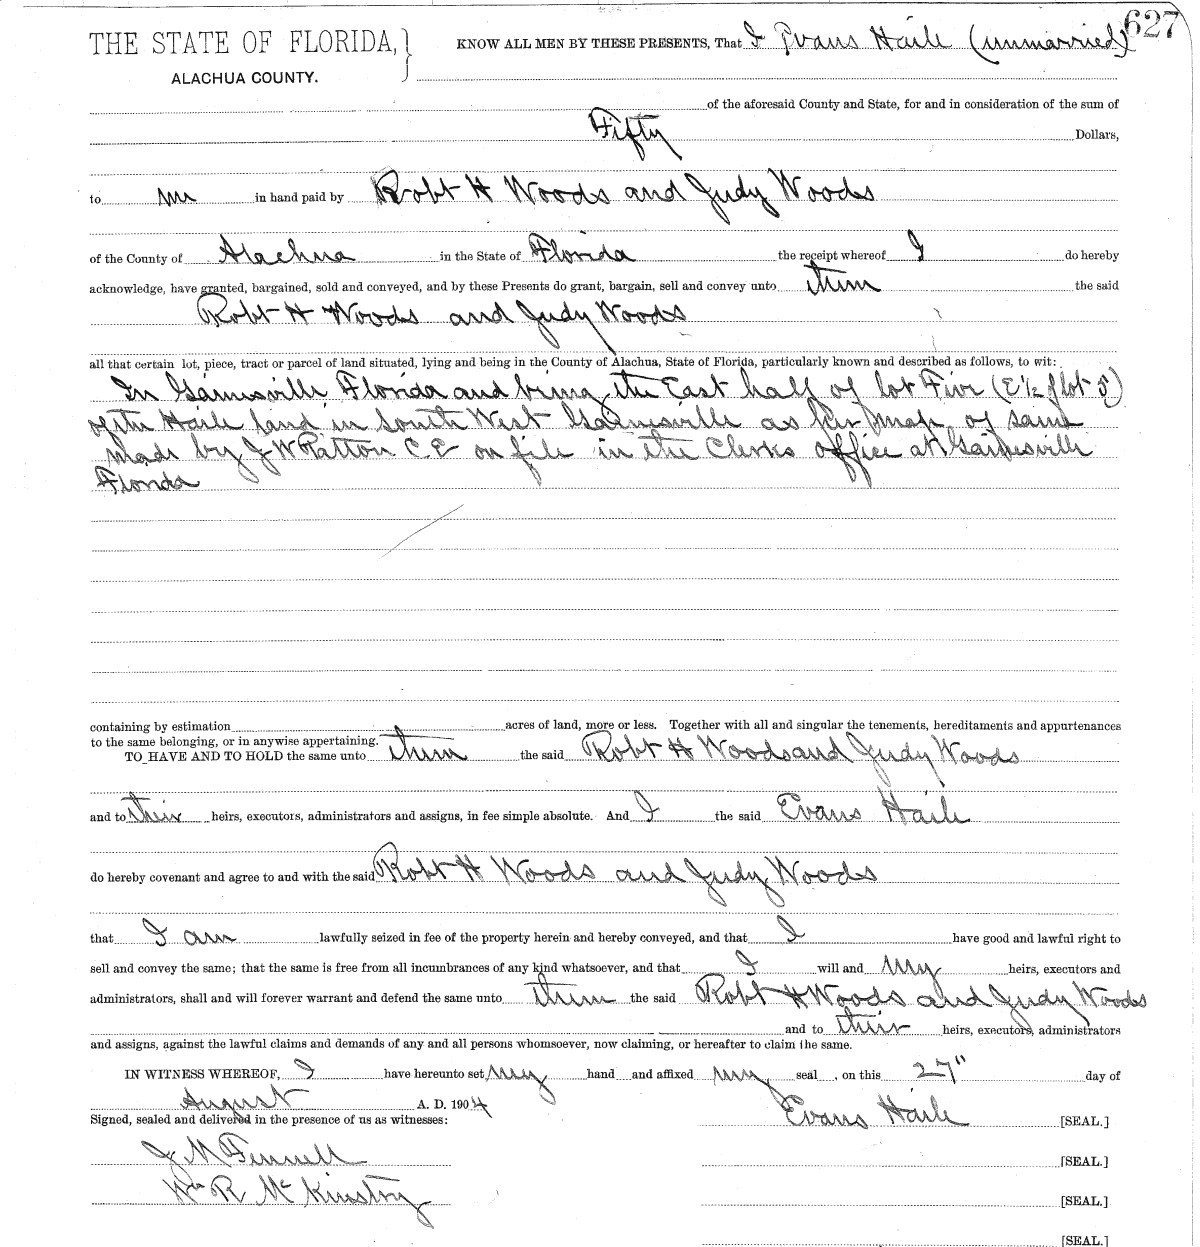 627
THE STATE OF FLORIDA, KNOW ALL MEN BY THESE PRESENTS, That I Evans Haile (unmarried)
ALACHUA COUNTY.
of the aforesaid County and State, for and in consideration of the sum of
Fifty Dollars,
to me in hand paid by Robt H Woods and Judy Woods
of the County of Alachua in the State of Florida the receipt whereof I do hereby
acknowledge, have granted, bargained, sold and conveyed, and by these Presents do grant, bargain, sell and convey unto them the said
Robt H Woods and Judy Woods
all that certain lot, piece, tract or parcel of land situated, lying and being in the County of Alachua, State of Florida, particularly known and described as follows, to wit:
In Gainesville Florida and being the East half of lot Five (E ½ of lot 5)
of the Haile land in South West Gainesville as per map of same
made by J W Patton C E on file in the Clerks office at Gainesville
Florida
containing by estimation acres of land, more or less. Together with all and singular the tenements, hereditaments and appurtenances
to the same belonging, or in anywise appertaining.
TO HAVE AND TO HOLD the same unto them the said Robt H Woods and Judy Woods
and to their heirs, executors, administrators and assigns, in fee simple absolute. And I the said Evans Haile
do hereby covenant and agree to and with the said Robt H Woods and Judy Woods
that I am lawfully seized in fee of the property herein and hereby conveyed, and that I have good and lawful right to
sell and convey the same; that the same is free from all incumbrances of any kind whatsoever, and that I will and my heirs, executors and
administrators, shall and will forever warrant and defend the same unto them the said Robt H Woods and Judy Woods
and to their heirs, executors, administrators
and assigns, against the lawful claims and demands of any and all persons whomsoever, now claiming, or hereafter to claim the same.
IN WITNESS WHEREOF, I have hereunto set my hand and affixed my seal, on this 27" day of
August A. D. 1904
Signed, sealed and delivered in the presence of us as witnesses: Evans Haile [SEAL.]
J M Fennell [SEAL.]
Wm R McKinstry [SEAL.]
[SEAL.]